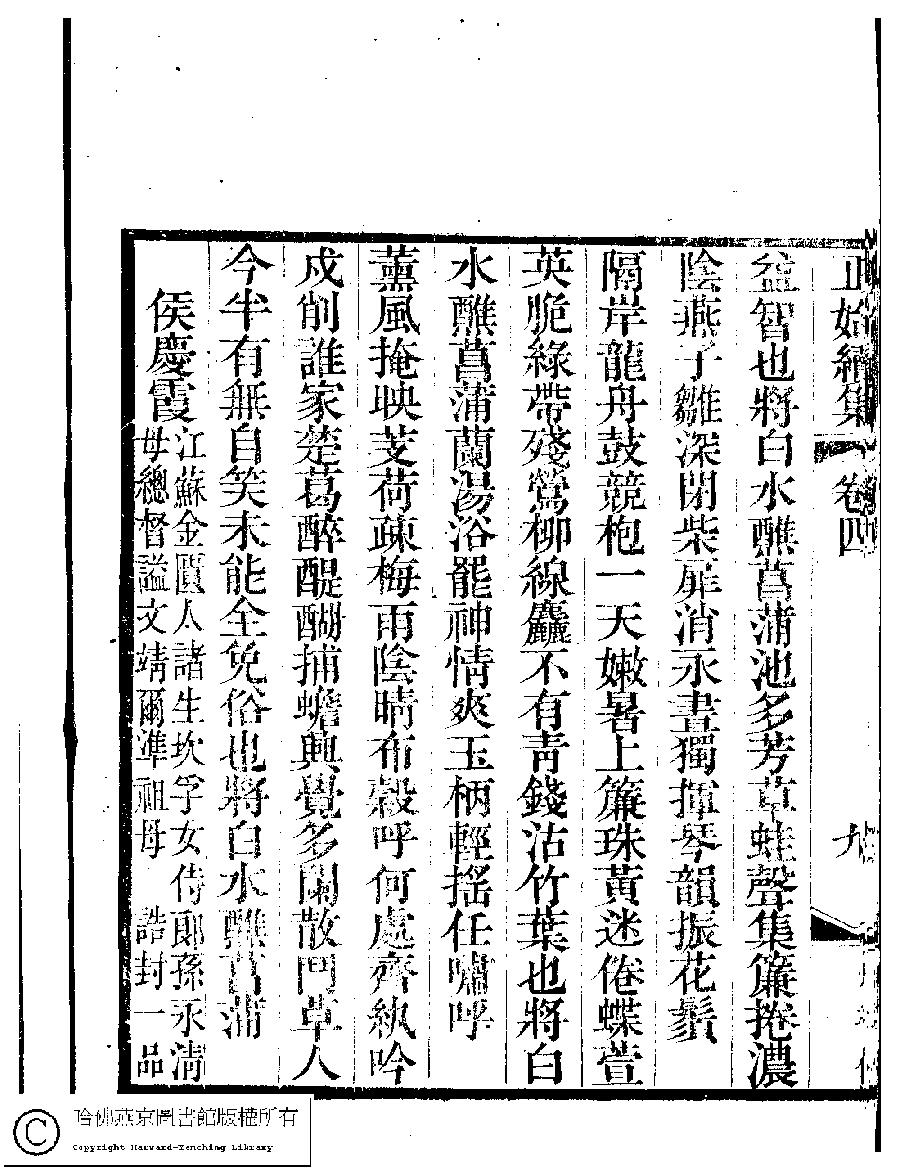 正始續集 卷四 九
益智也將白水醮菖蒲池多芳草蛙聲集簾捲濃
陰燕子雛深閉柴扉消永晝獨揮琴韻振花鬚
隔岸龍舟鼓競枹一天嫩暑上簾珠黃迷倦蝶萱
英脆綠帶殘鶯柳線麤不有青錢沽竹葉也將白
水醮菖蒲蘭湯浴罷神情爽玉柄輕搖任嘯呼
薰風掩映芰荷疎梅雨陰晴布穀呼何處齊紈吟
戍削誰家楚葛醉醍醐捕蟾興覺多閒散鬥草人
今半有無自笑未能全免俗也將白水醮菖蒲
侯慶霞 江蘇金匱人諸生坎孚女侍郞孫永淸
母總督諡文靖爾準祖母 誥封一品
哈佛燕京圖書館版權所有
Copyright Harvard-Yenching Library